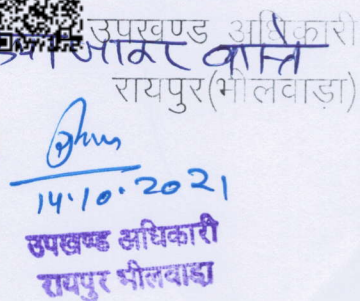 उपखण्ड अधिकारी
रायपुर(भीलवाड़ा)
14.10.2021
उपखण्ड अधिकारी
रायपुर भीलवाडा